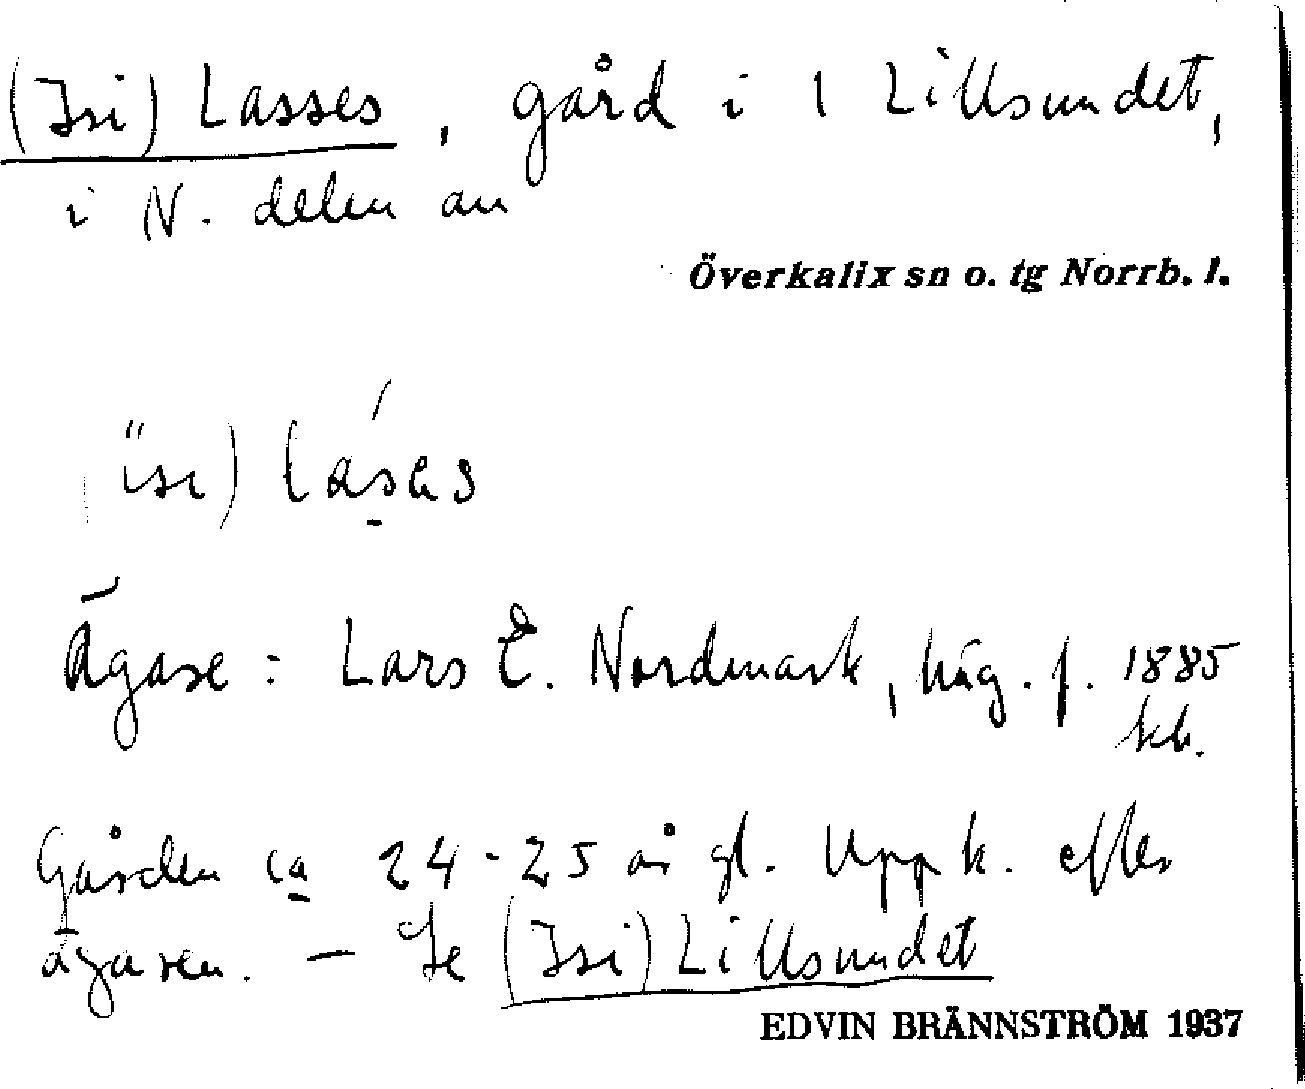 (Isi) Lasses, gård i 1 Lillsundet,
i N. delen av
Överkalix sn o. tg Norrb. l.
isi) lases
Ägare: Lars E. Nordmark, häg. f. 1885
kb.
Gården ca 24-25 år gl. Uppk. efter
ägaren. - Se (Isi) Lillsundet
EDVIN BRÄNNSTRÖM 1937